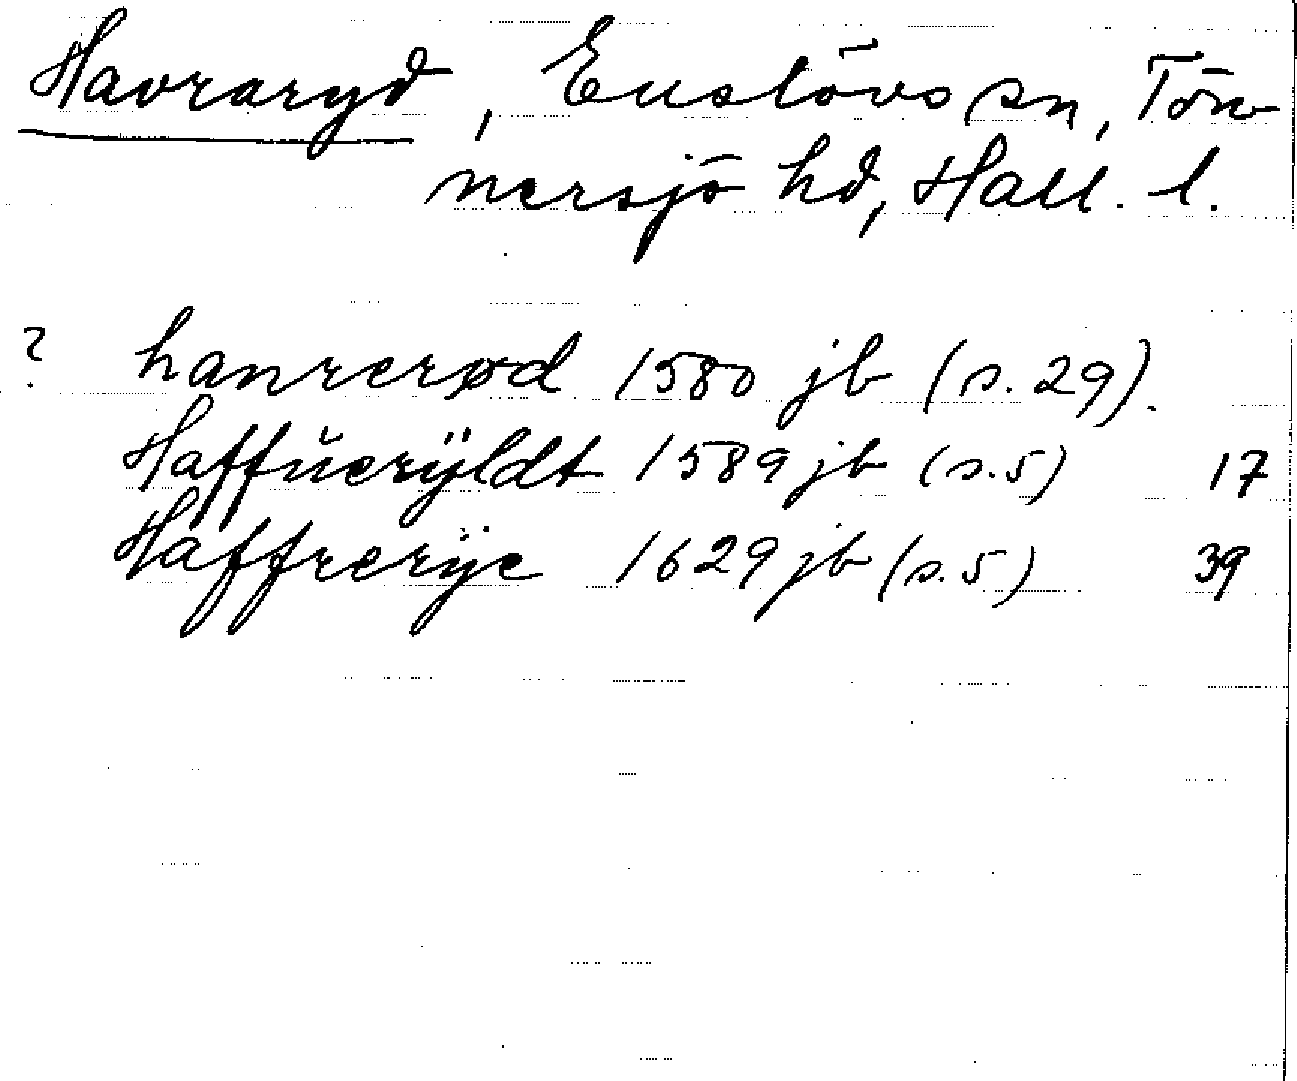 Havraryd, Enslövs sn, Tön-
nersjö hd, Hall. l.
? hanrerød 1580 jb (s. 29).
Haffŭerÿldt 1589 jb (s. 5) 17
Haffrerÿe 1629 jb (s. 5) 39